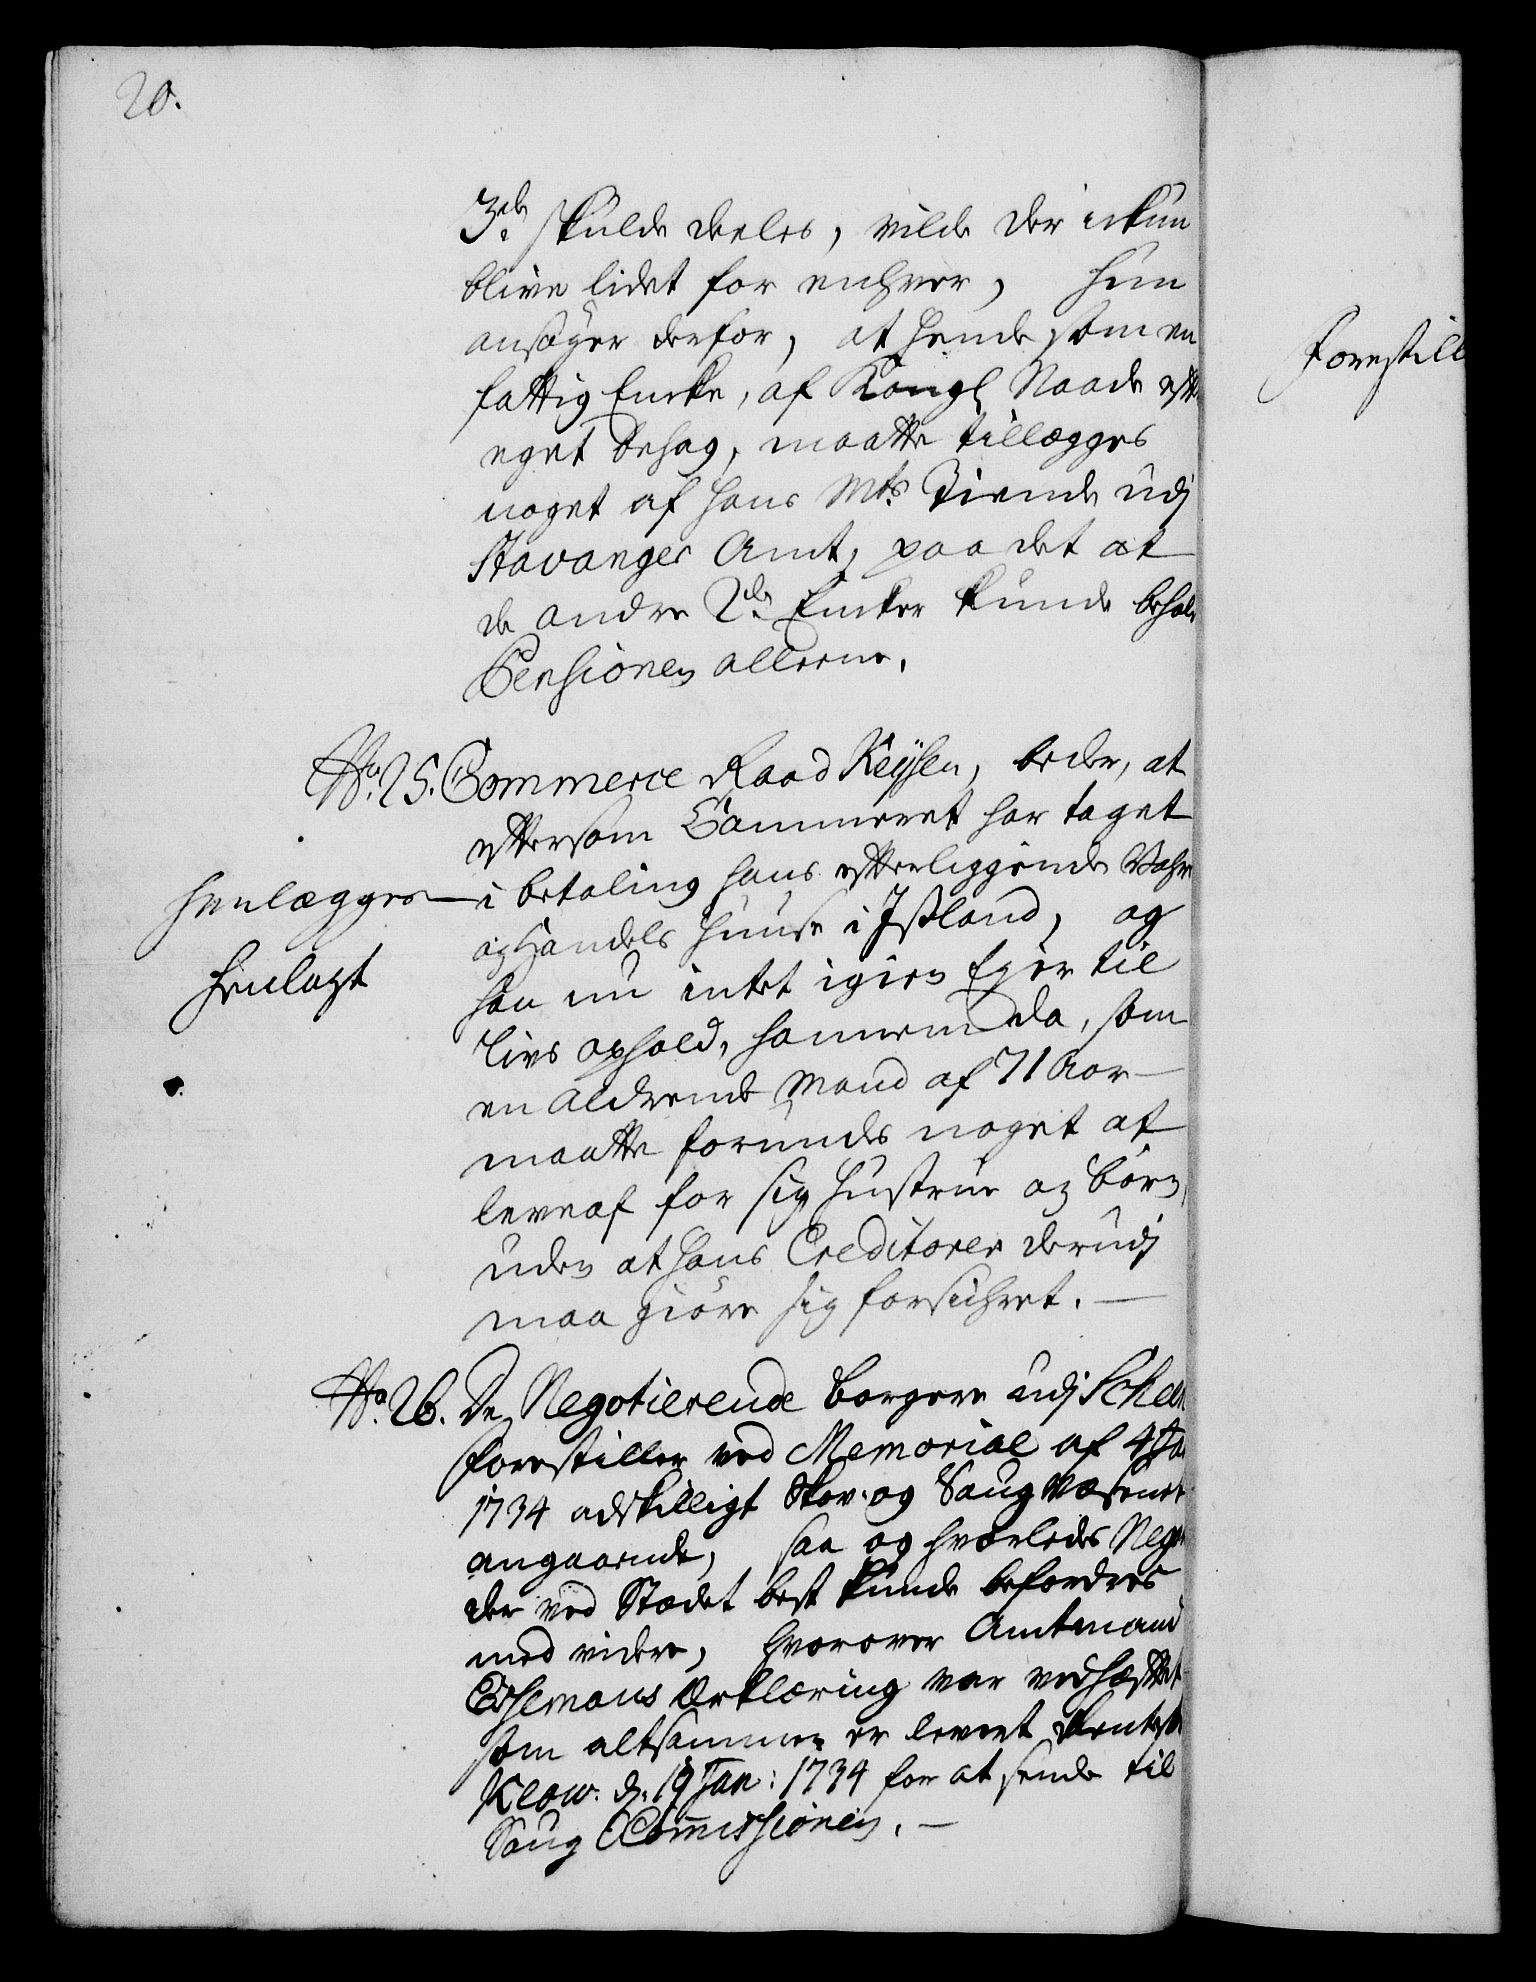 20.
3de skulde deeles, vilde der ickun
blive lidet for enhver, hun
ansöger derfor, at hende som en
fattig Encke, af Kongl Naade eft
eget behag, maatte tillægges
noget af hans Mts Tiende udj
Stavanger Amt, paa det at
de andre 2de Encker kunde behold
Pensionen alleene.
No. 25. Commerce Raad Keysen, beder, at
eftersom Cammeret har taget
i betaling hans efterliggende Vahre
og Handels Huuse i Iisland, og
han nu intet igien Eyer til
Livs ophold, hannem da, som
en Aldrende Mand af 71 Aar
maatte forundes noget at
leve af for sig Hustrue og Børn,
uden at hans Creditorer derudj
maa giöre sig forsichret.
henlægges
henlagt
No. 26. De Negotierende Borgere udj Scheen
forestiller ved Memorial af 4 Ja
1734 adskilligt Skov- og Saug Væsenet
angaaende, saa og hvorledes Nego
der ved Stædet best kunde befordres
med videre, hvorover Amtmand
Erklæring var vedhæftet
som altsammen er levert Rentesk
Klow. d. 19 Jan: 1734 for at sende til
Saug Commissionen.
Forestill